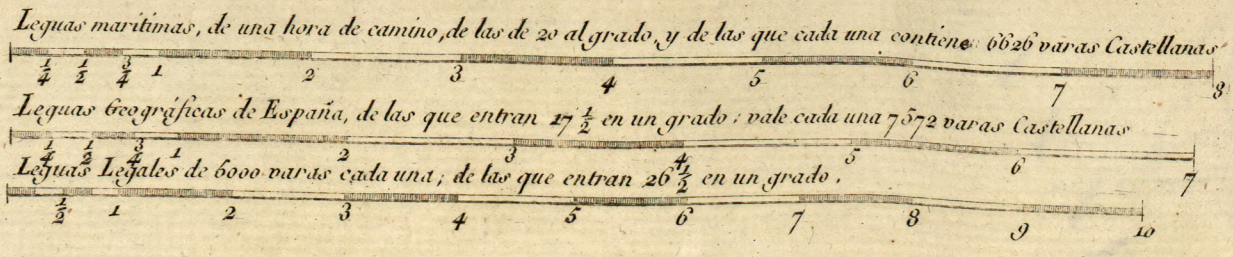 Leguas maritimas, de una hora de camino, de las de 20 al grado, y de las que cada una contiene 6626 varas Castellanas
1/4 1/2 3/4 1 2 3 4 5 6 7 8
Leguas Geográficas de España, de las que entran 17 1/2 en un grado: vale cada una 7572 varas Castellanas
1/4 1/2 3/4 1 2 3 4 5 6 7
Leguas Legales de 6000 varas cada una; de las que entran 26 1/2 en un grado.
1/2 1 2 3 4 5 6 7 8 9 10